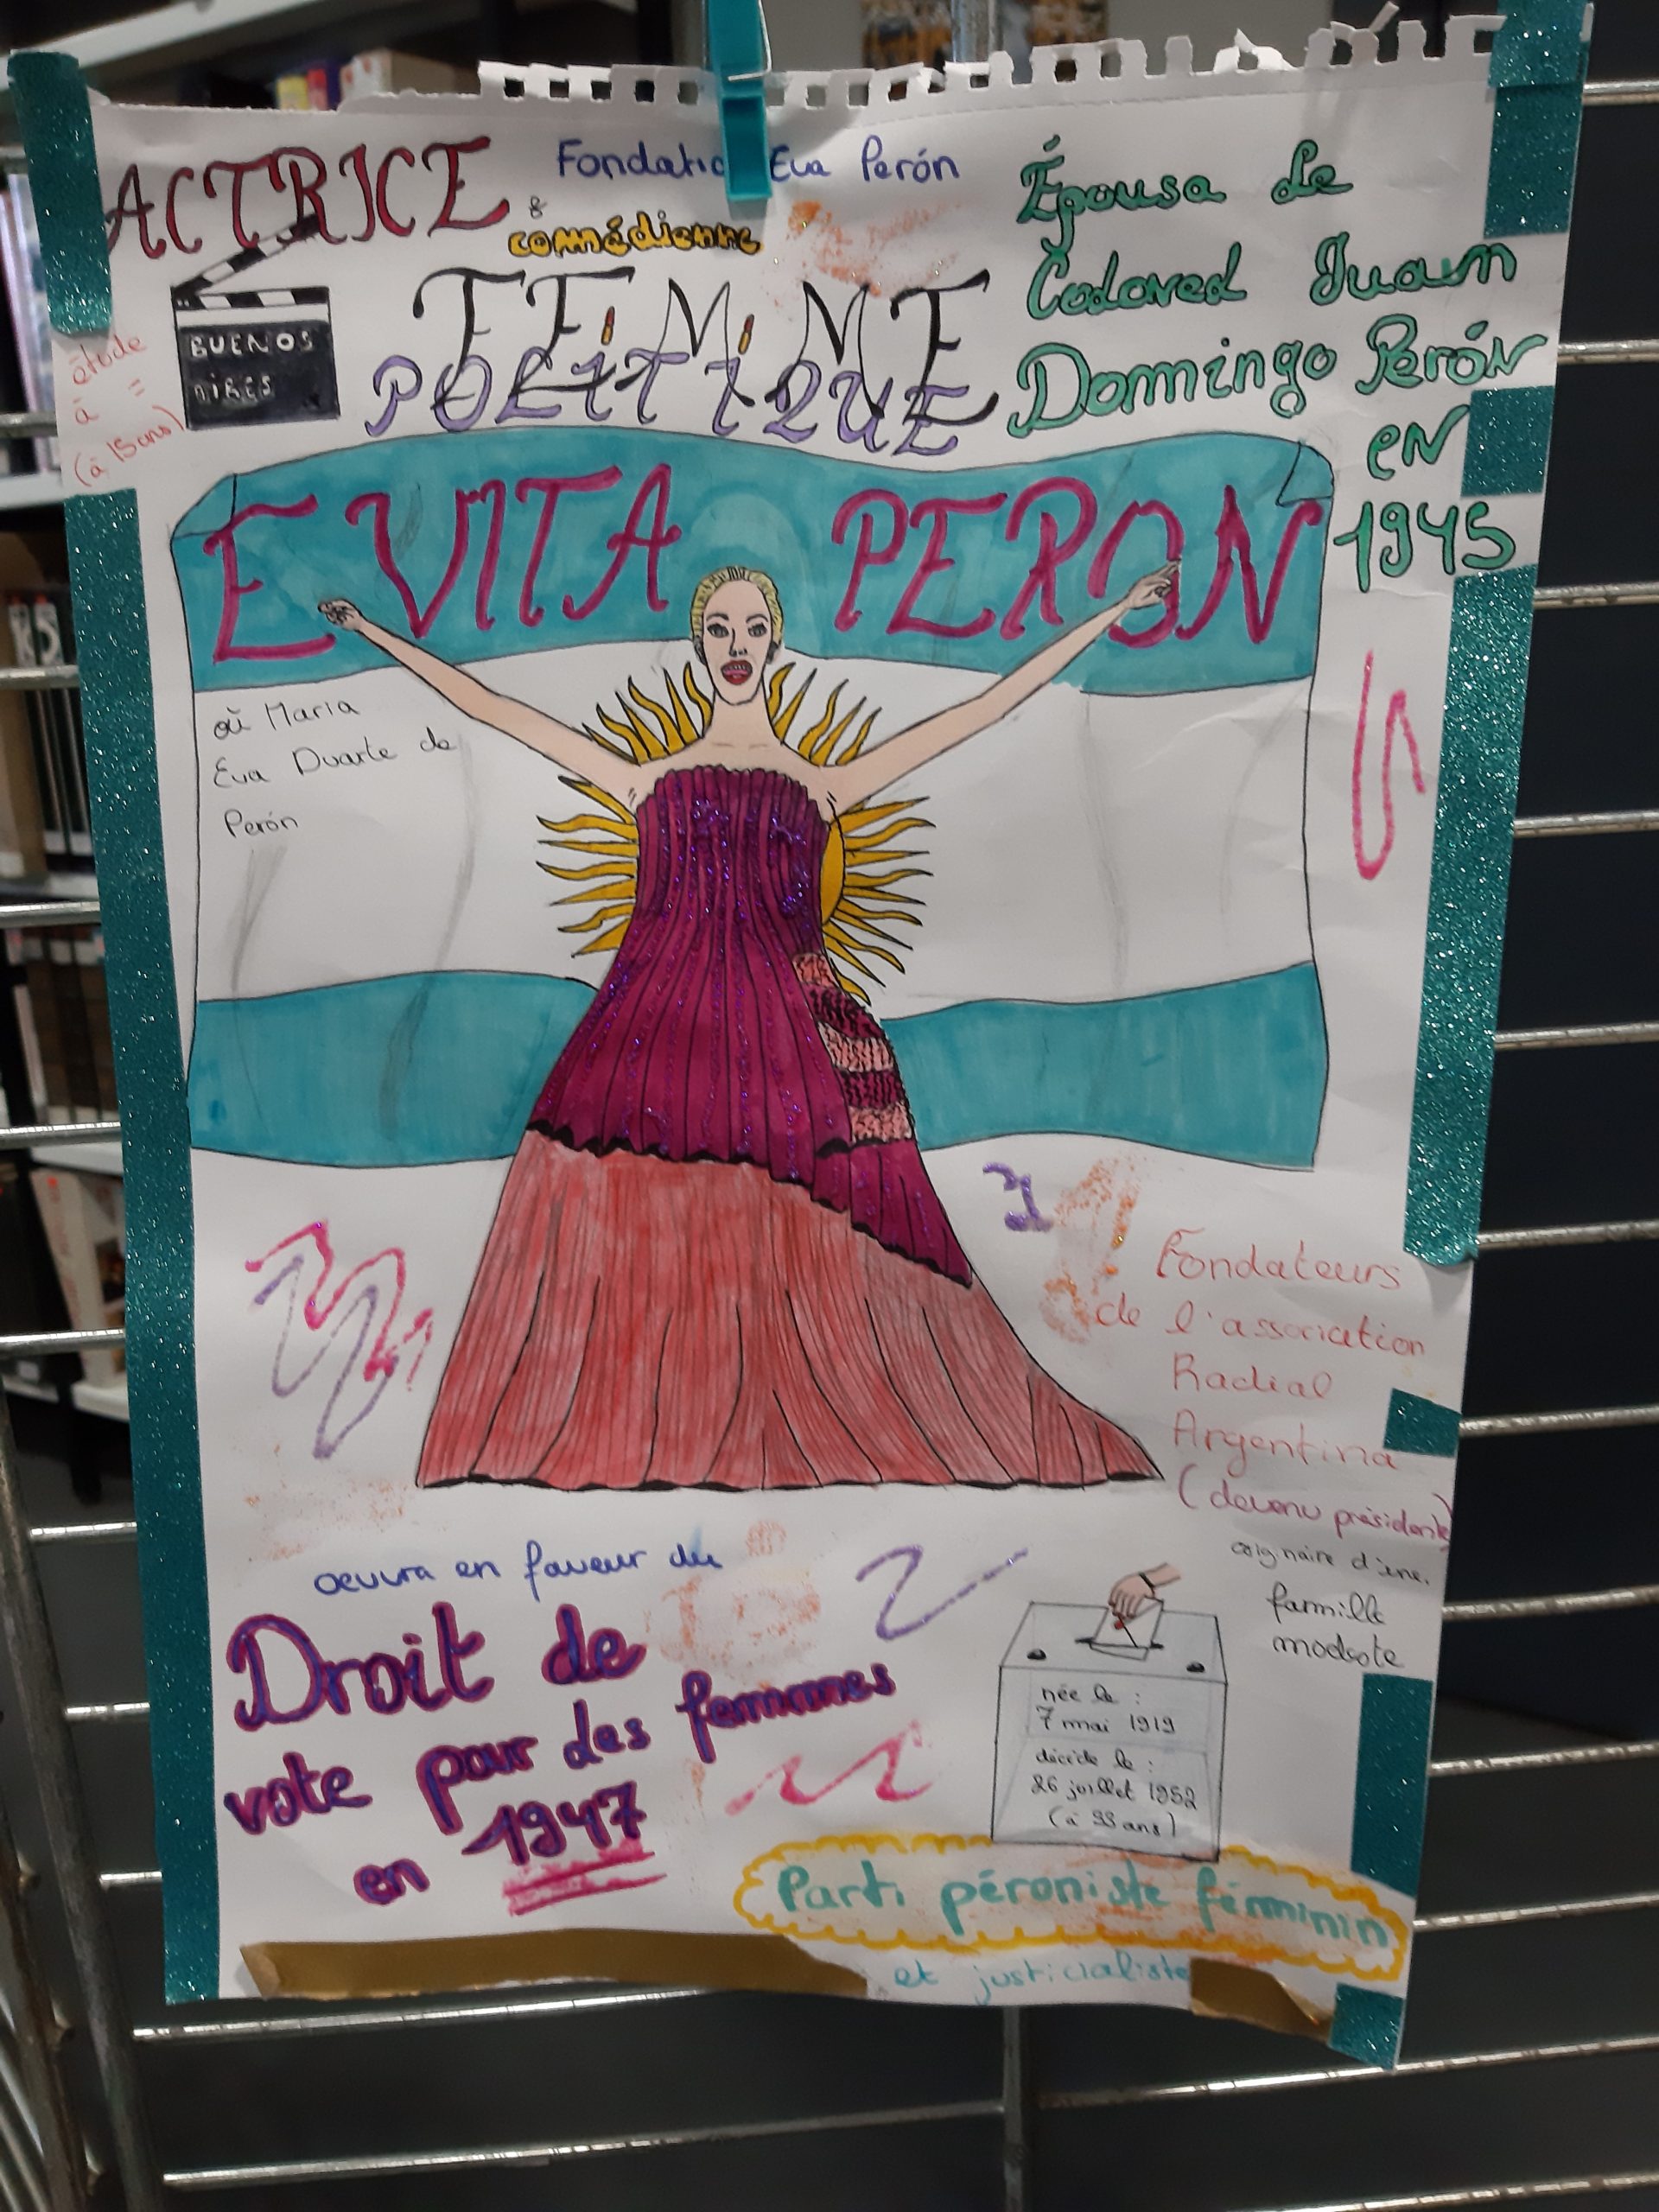 ACTRICE
&
comédienne
Fondatio Eva Perón
Épousa de
Colonel Juan
Domingo Perón
en
1945
FEMME
POLITIQUE
BUENOS
AIRES
étude
à =
(à 15 ans)
EVITA PERON
où Maria
Eva Duarte de
Perón
Fondateurs
de l'association
Radial
Argentina
(devenu présidente)
originaire d'une
famille
modeste
oeuvra en faveur du
Droit de
vote pour des femmes
en 1947
née le :
7 mai 1919
décéde le :
26 juillet 1952
(à 33 ans)
Parti péroniste féminin
et justicialiste